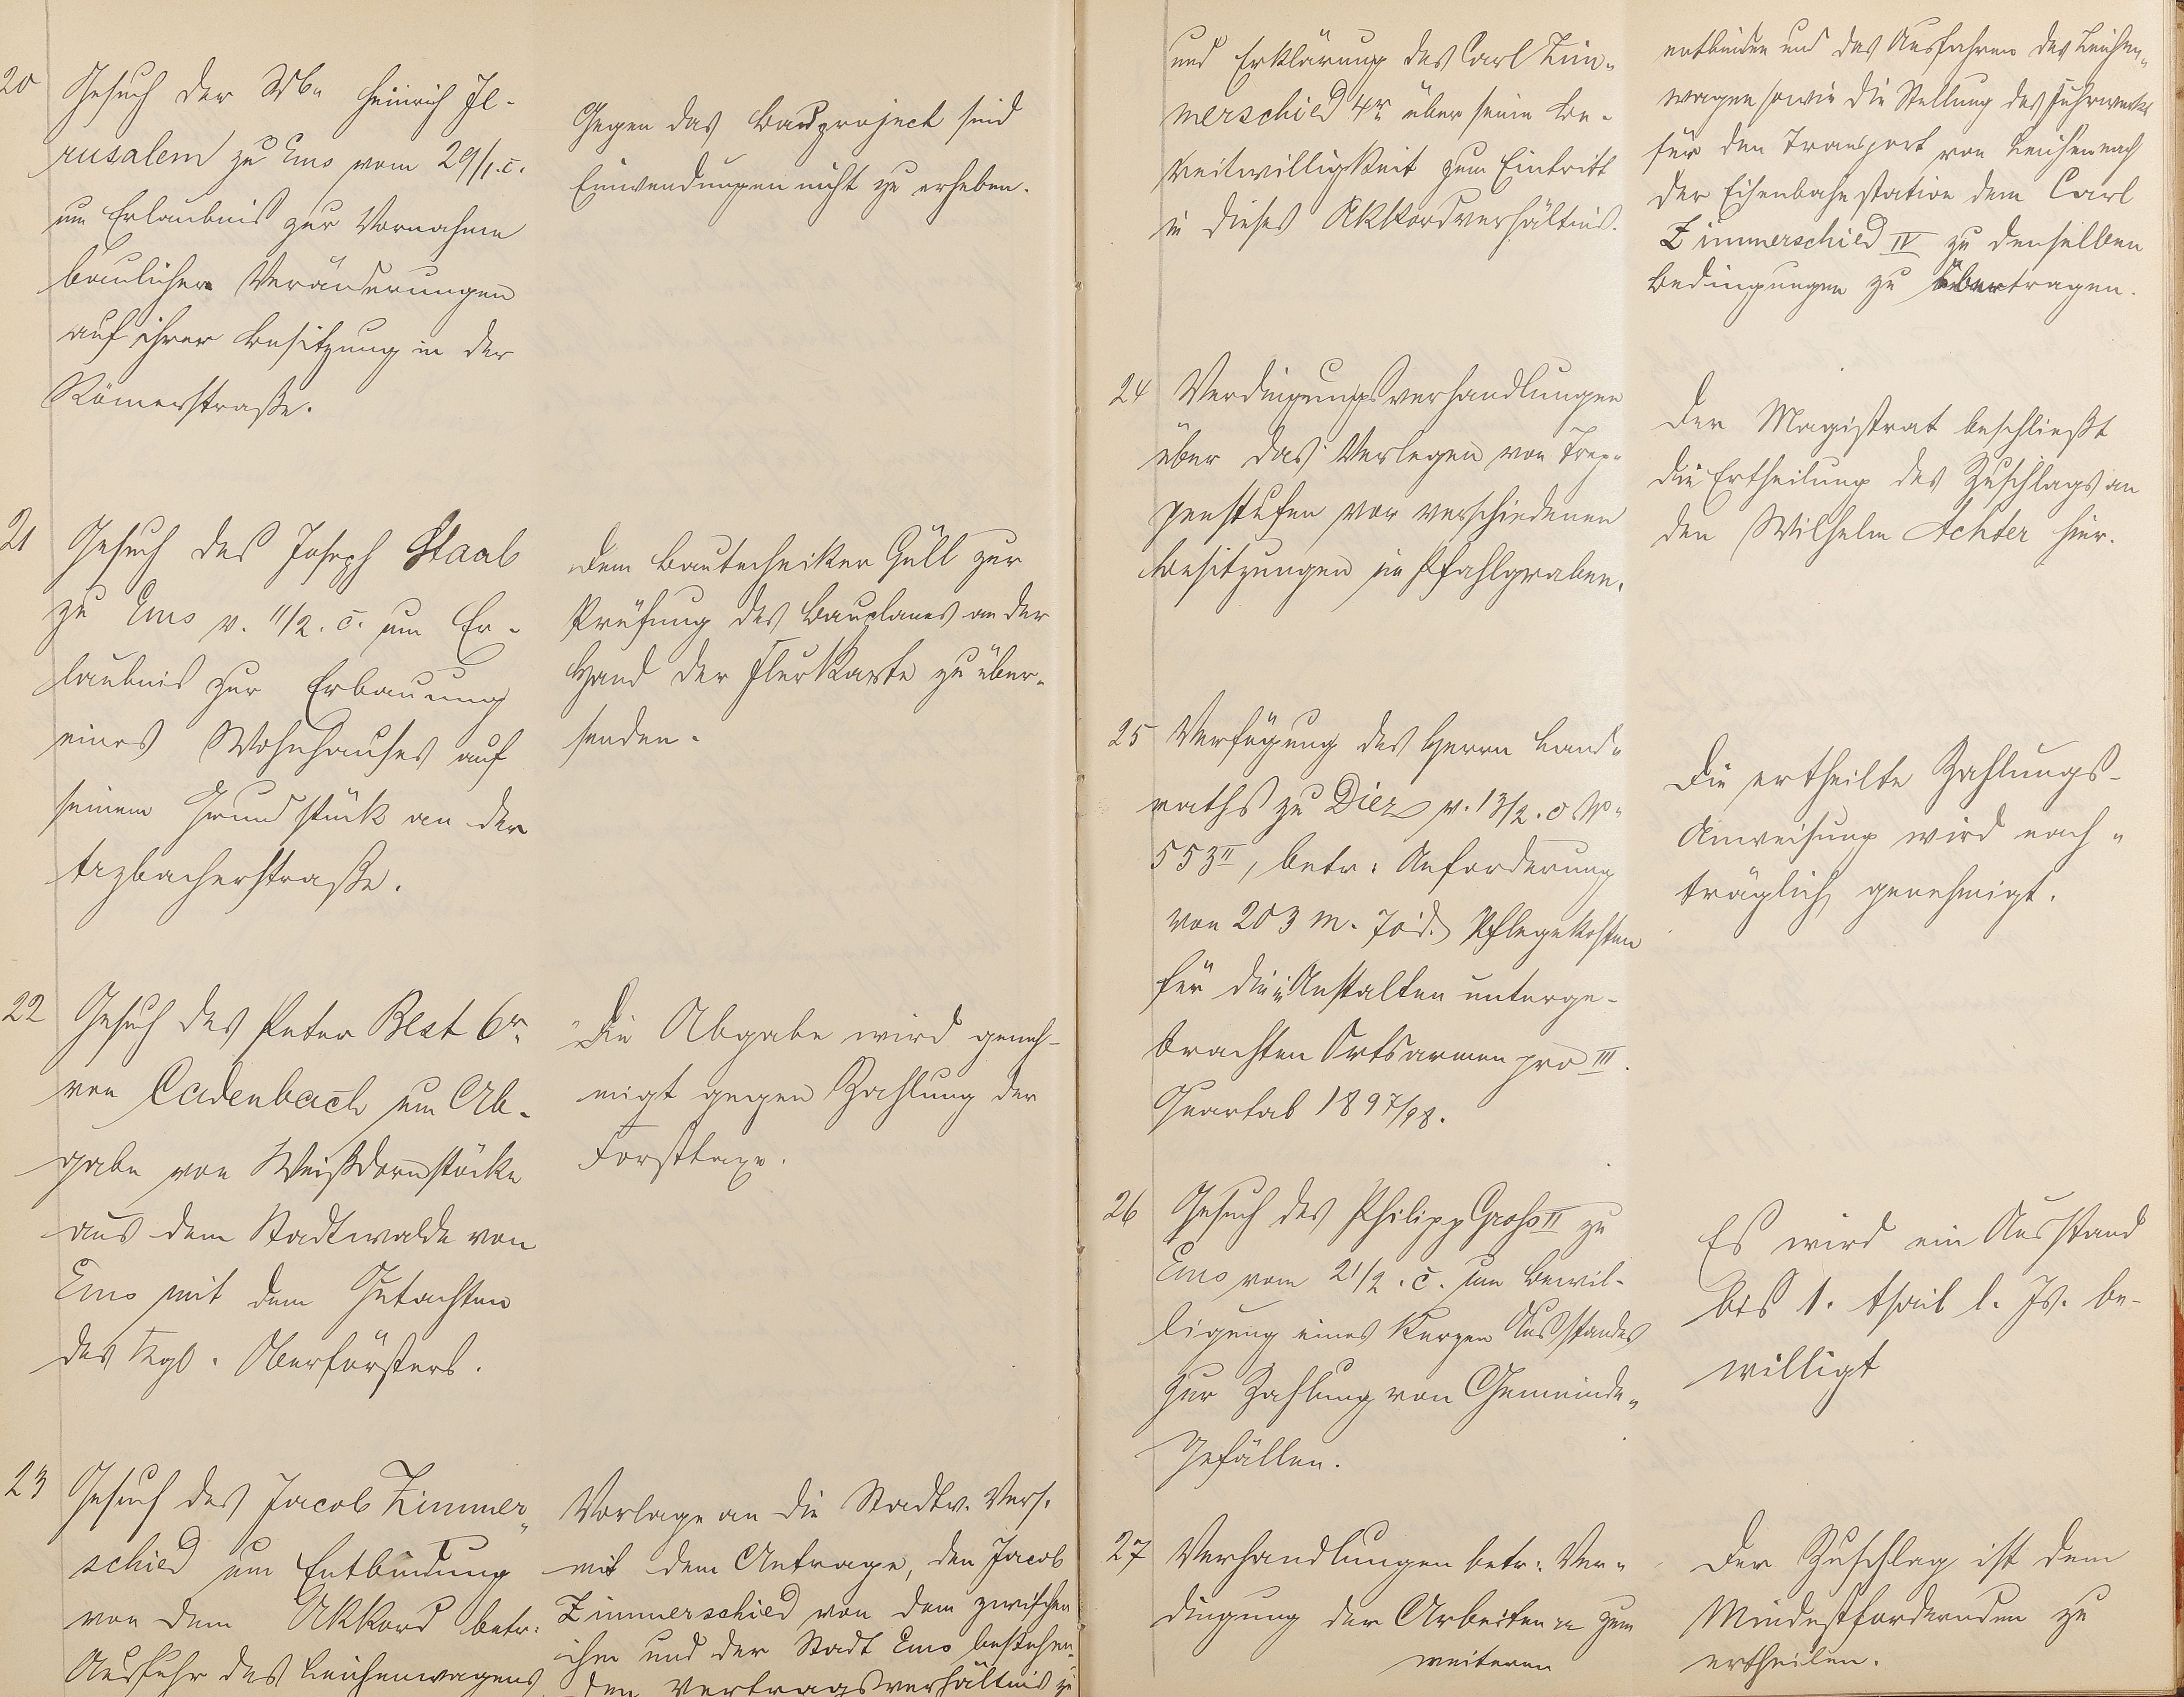 20
Gesuch der Wb. Heinrich Je-
rusalem zu Ems vom 29/1. c.
um Erlaubniß zur Vornahme
baulicher Veränderungen
auf ihrer Besitzung in der
Römerstraße.
Gegen das Bauproject sind
Einwendungen nicht zu erheben.
21
Gesuch des Joseph Staab
zu Ems v. 11/2. c. um Er-
laubnis zur Erbauung
eines Wohnhauses auf
seinem Grundstück an der
Arzbacherstraße.
Dem Bautechniker Güll zur
Prüfung des Bauplanes an der
Hand der Flurkarte zu über-
senden.
22
Gesuch des Peter Best 6r
von Cadenbach um Ab-
gabe von Weißdornstöcke
aus dem Stadtwalde von
Ems mit dem Gutachten
des Kgl. Oberförsters.
Die Abgabe wird geneh-
migt gegen Zahlung der
Forsttaxe.
23
Gesuch des Jacob Zimmer-
schied um Entbindung
von dem Akkord betr.
Ausfuhr des Leichenwagens
Vorlage an die Stadtv. Vers.
mit dem Antrage, den Jacob
Zimmerschied von dem zwischen
ihm und der Stadt Ems bestehen-
den Vertragsverhältnis zu
und Erklärung des Carl Zim-
merschied 4r über seine Be-
reitwilligkeit zum Eintritt
in dieses Akkordverhältnis.
entbinden und das Ausfahren des Leichen-
wagen sowie die Stellung des Fuhrwerks
für den Transport von Leichen nach
der Eisenbahnstation dem Carl
Zimmerschied IV zu denselben
Bedingungen zu übertragen.
24
Verdingungsverhandlungen
über das Verlegen von Trep-
penstufen vor verschiedenen
Besitzungen in Pfahlgraben.
Der Magistrat beschließt
die Ertheilung des Zuschlags an
den Wilhelm Achter hier.
25
Verfügung des Herrn Land-
raths zu Diez v. 13/2. c №
553 II, betr: Anforderung
von 203 M. 70 d. Pflegekosten
für die in Anstalten unterge-
brachten Ortsarmen pro III.
Quartal 1897/98.
Die ertheilte Zahlungs-
Anweisung wird nach-
träglich genehmigt.
26
Gesuch des Philipp Groß II zu
Ems vom 21/2. c. um Bewil-
ligung eines kurzen Ausstandes
zur Zahlung von Gemeinde-
Gefällen.
Es wird ein Ausstand
bis 1. April l. Js. be-
willigt
27
Verhandlungen betr: Ver-
dingung der Arbeiten zum
weiteren
Der Zuschlag ist dem
Mindestfordernden zu
ertheilen.